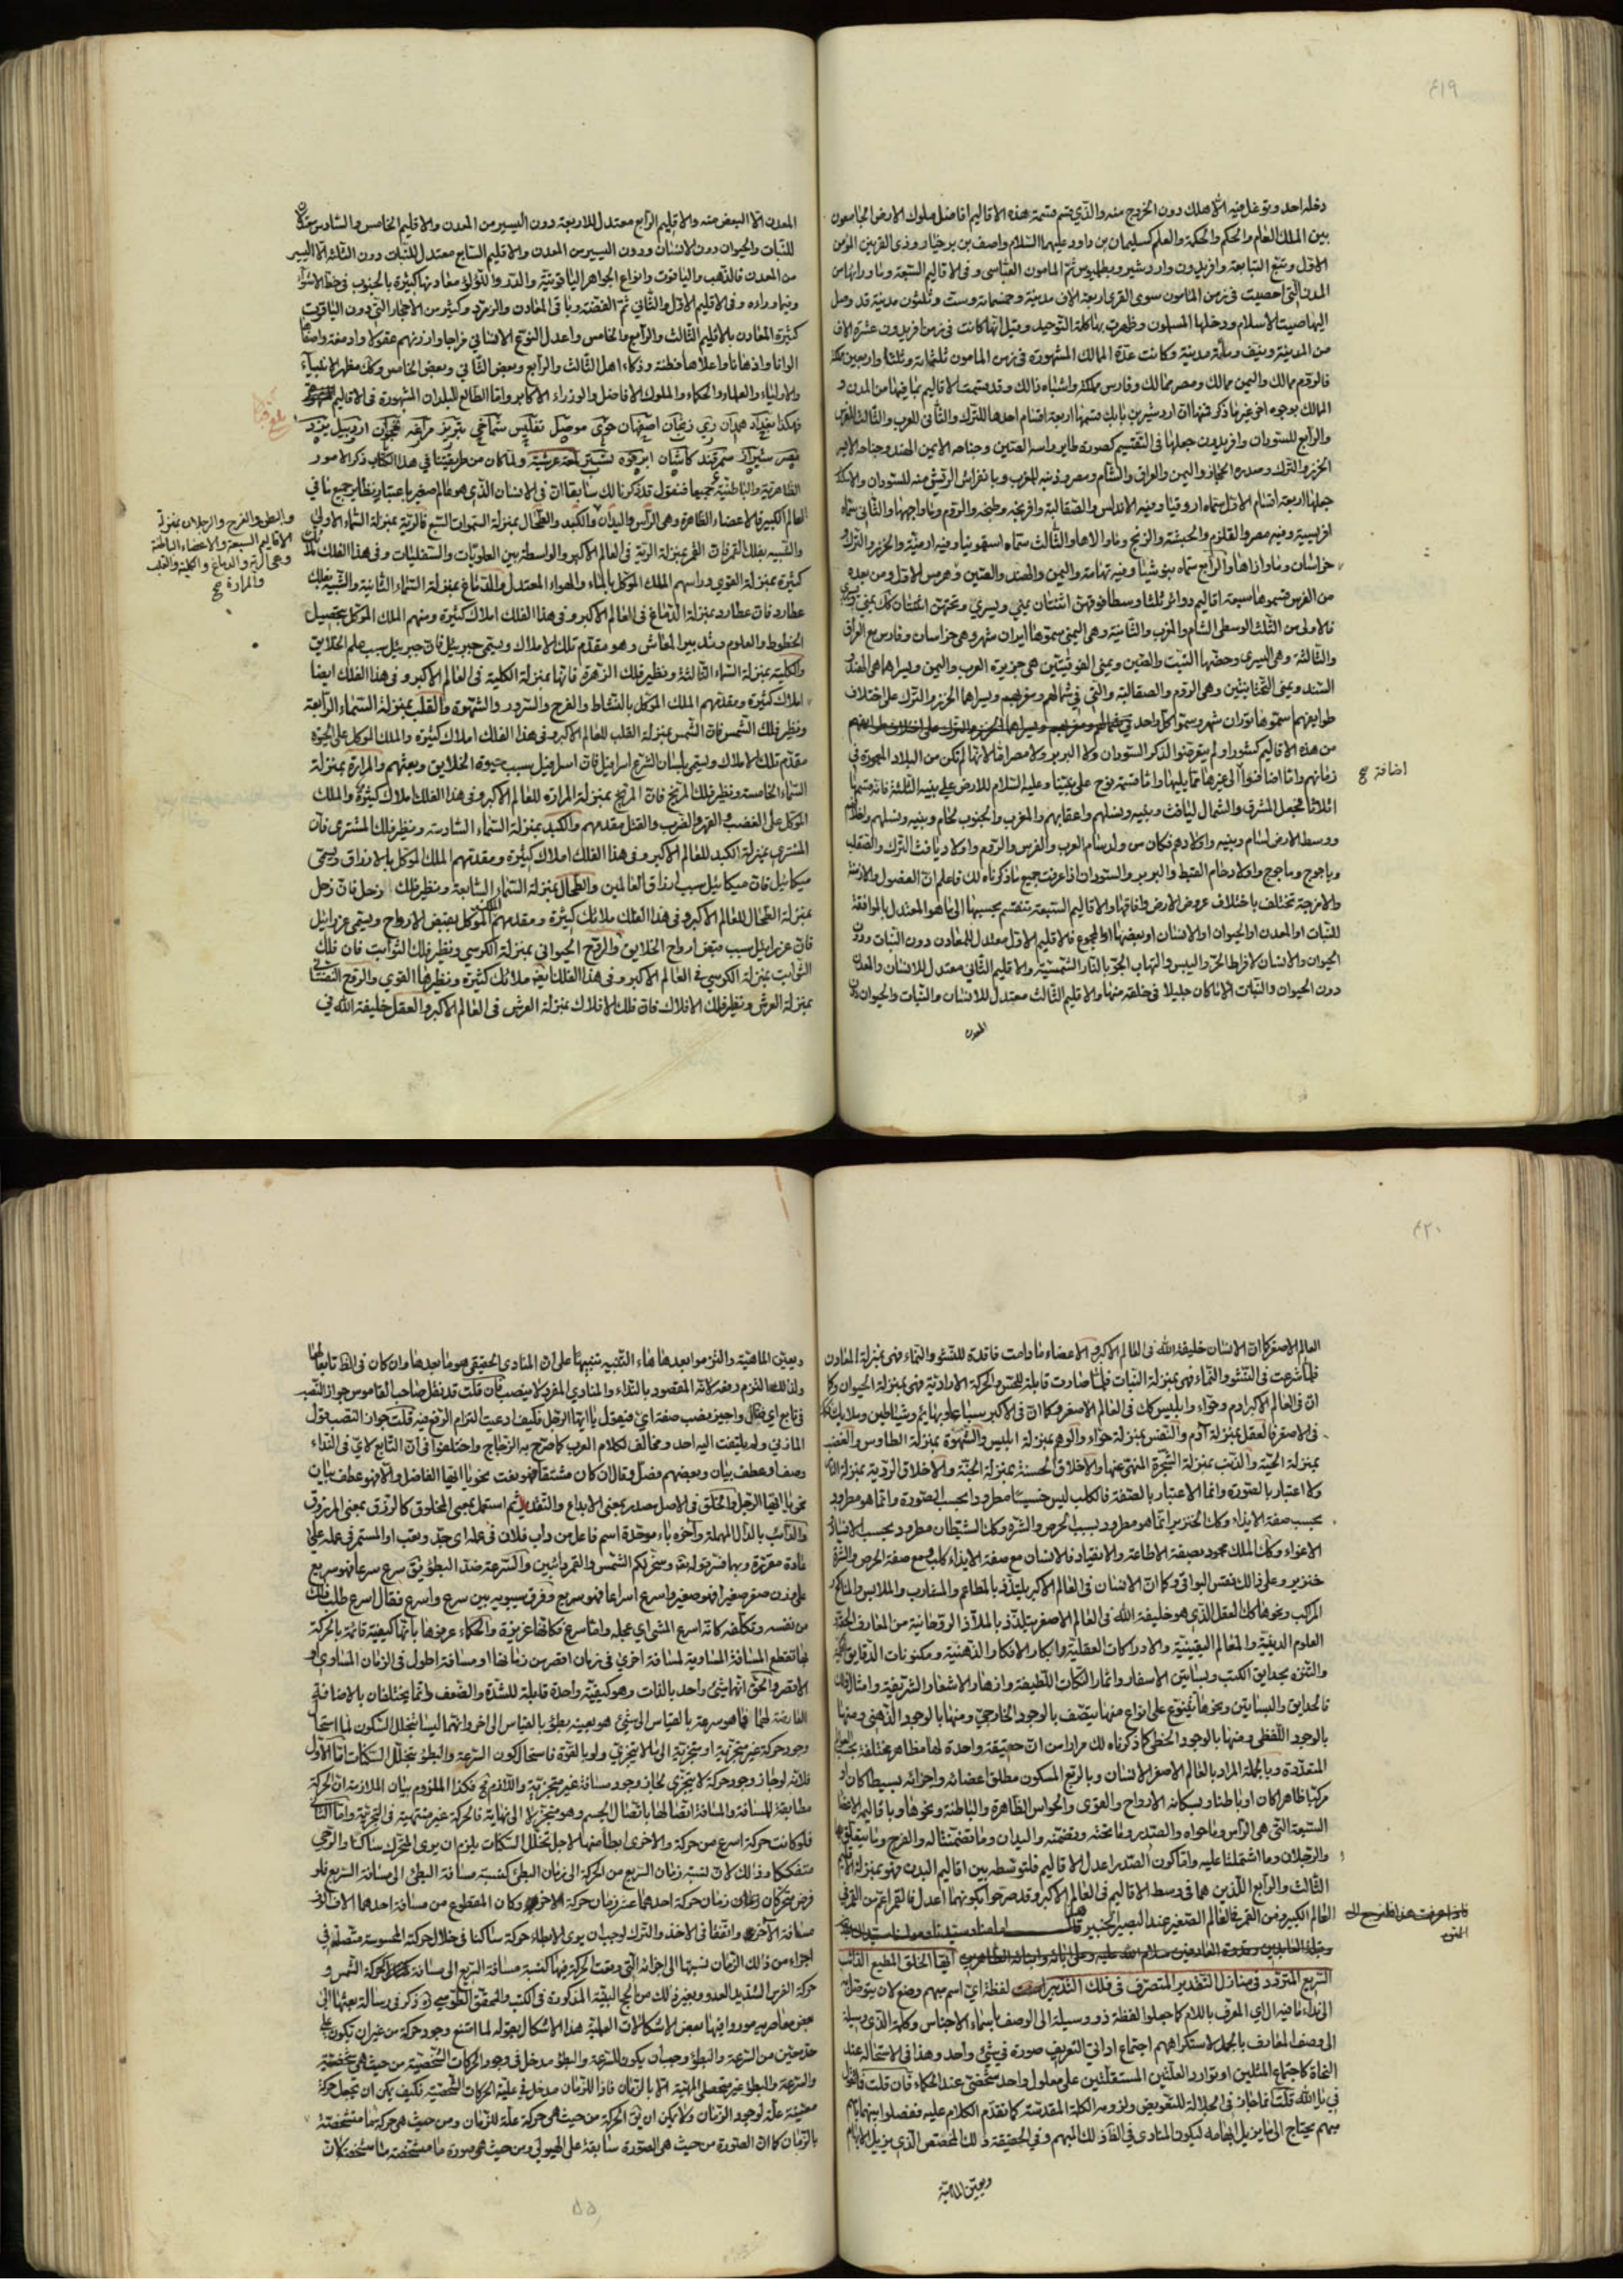 ٤١٩
دخله احد وتوغل فيه الا هلك دون الخروج منه والذي قسم قسمة هذه الاقاليم افاضل ملوك الارض الجامعون
بين الملك العام والحكم والحكمة والعلم كسليمان بن داود عليهما السلام واصف بن برخيا وذي القرنين المؤمن
الاول وتبع التبابعة وافريدون واردشير وبطلميوس ثم المامون العباسي وفي الاقاليم السبعة وما ورائها من
المدن التي احصيت في زمن المامون سوى القرى اربعة الاف مدينة وخمسمائة وست وثلثون مدينة قد وصل
اليها صيت الاسلام ودخلها المسلمون وظهرت بها كلمة التوحيد وقيل انها كانت في زمن افريدون عشرة الاف
من المدينة ونيف ومائة مدينة وكانت عدة الممالك المشهورة في زمن المامون ثلثمائة وثلثا واربعين مملكة
فالروم ممالك واليمن ممالك ومصر ممالك وفارس مملكة واشباه ذلك وقد قسمت الاقاليم بما فيها من المدن و
الممالك بوجوه اخر غير ما ذكر فمنها ان اردشير بن بابك قسمها اربعة اقسام احدها للترك والثاني للعرب والثالث للفرس
والرابع للسودان وافريدون جعلها في التقسيم كصورة طاير راسه الصين وجناحه الايمن الهند وجناحه الايسر
الخزر والترك وصدره الحجاز واليمن والعراق والشام ومصر وذنبه المغرب
جعلها اربعة اقسام الاول سماه اروقيا وفيه الاندلس والصقالبة وافرنجة وطنجة والروم وما واجهها والثاني سماه
وفيه مصر والقلزم والحبشة والزنج وما والاها والثالث سماه اسقونيا وفيه ارمنية والخزر والترك و
خراسان وما وازاها والرابع سماه وفيه تهامة واليمن والهند والصين وهرمس الاول ومن بعده
من الفرس قسموها سبعة اقاليم دوائر ثلثا وسطا فوقهن اثنتان يمنى ويسرى وتحتهن اثنتان كك يمنى ويسرى
فالاولى من الثلث الوسطى الشام والمغرب والثانية وهي اليمنى سموها ايران شهر وهي خراسان وفارس مع العراق
والثالثة وهي اليسرى وخصها التبت والصين ويمنى الفوقيتين هي جزيرة العرب واليمن ويسراهما هي الهند و
السند ويمنى التحتانيتين وهي الروم والصقالبة والتي في شمالهم ومغربهم ويسراهما الخزر والترك على اختلاف
طوايفهم سموها توران شهر وسموا كل واحد
من هذه الاقاليم كشور ولم يتعرضوا لذكر السودان ولا البربر ولا مصر اما لانها لم تكن من البلاد المعمورة في
زمانهم واما اضافوا الى غيرها مما يليها واما قسمة نوح على نبينا وعليه السلام للارض على بنيه الثلثة فانه قسمها
اثلاثا فجعل المشرق والشمال ليافث وبنيه ونسلهم واعقابهم والمغرب والجنوب لحام وبنيه ونسلهم
ووسط الارض لسام وبنيه واولادهم فكان من ولد سام العرب والفرس والروم واولاد يافث الترك والصقلب
وياجوج وماجوج واولاد حام القبط والبربر والسودان اذا عرفت جميع ما ذكرناه لك فاعلم ان الفصول والازمنة
والامزجة تختلف باختلاف عروض الارض وافاقها والاقاليم السبعة تنقسم بحسبها الى ما هو المعتدل بالموافقة
للنبات او المعدن او الحيوان او الانسان او بعضها او المجموع فالاقليم الاول معتدل للمعادن دون النبات ودون
الحيوان والانسان لافراط الحر واليبس والتهاب الجو بالنار الشمسية والاقليم الثاني معتدل للانسان والمعدن
دون الحيوان والنبات الا ما كان جليلا في خلقه منها والاقليم الثالث معتدل للانسان والنبات والحيوان دون
المعدن
اضافة صح
المعدن الا البعض منه والاقليم الرابع معتدل للاربعة دون اليسير من المعدن والاقليم الخامس والسادس معتدلان
للنبات والحيوان دون الانسان ودون اليسير من المعدن والاقليم السابع معتدل للنبات دون الثلثة الا اليسير
من المعدن فالذهب والياقوت وانواع الجواهر الياقوتية والدر واللؤلؤ معادنها كثيرة بالجنوب في خط الاستواء
وفيما وراءه وفي الاقليم الاول والثاني ثم الفضة وباقي المعادن والزمرد وكثير من الاحجار التي دون الياقوت
كثيرة المعادن بالاقليم الثالث والرابع والخامس واعدل النوع الانساني مزاجا وارزنهم عقولا وادمغة واصفا
الوانا واذهانا واعلاها فطنة وذكاء اهل الثالث والرابع وبعض الثاني وبعض الخامس وكك مظهر الانبياء
والاولياء والعلماء والحكماء والملوك الافاضل والوزراء الاكابر واما الطالع للبلدان المشهورة في الاقاليم
فهكذا بغداد همدان ري زنجان اصفهان خوى موصل تفليس شماخي تبريز مراغه نخجوان اردبيل يزد
مصر شيراز سمرقند كاشان ابرقوه ولما كان من طريقتنا في هذا الكتاب ذكر الامور
الظاهرية والباطنية جميعها فنقول قد ذكرنا لك سابقا ان في الانسان الذي هو عالم صغير باعتبار نظاير جميع ما في
العالم الكبير فالاعضاء الظاهرة وهي الراس واليدان والكبد والطحال بمنزلة السموات السبع فالرية بمنزلة السماء الاولى
والشبيه بفلك القمر فان القمر بمنزلة الرية في العالم الاكبر والواسطة بين العلويات والسفليات وفي هذا الفلك ملائكة
كثيرة بمنزلة القوى وراسهم الملك الموكل بالماء والهواء المعتدل والدماغ بمنزلة السماء الثانية والشبيه بفلك
عطارد فان عطارد بمنزلة الدماغ في العالم الاكبر وفي هذا الفلك املاك كثيرة ومنهم الملك الموكل بتحصيل
الخطوط والعلوم وتدبير المعاش وهو مقدم تلك الاملاك ويسمى جبرئيل فان جبرئيل سبب علم الخلايق
والكلية بمنزلة السماء الثالثة ونظير فلك الزهرة فانها بمنزلة الكلية في العالم الاكبر وفي هذا الفلك ايضا
املاك كثيرة ومقدمهم الملك الموكل بالنشاط والفرح والسرور والشهوة والقلب بمنزلة السماء الرابعة
ونظير فلك الشمس فان الشمس بمنزلة القلب للعالم الاكبر وفي هذا الفلك املاك كثيرة والملك الموكل على الحيوة
مقدم تلك الاملاك ويسمى بلسان الشرع اسرافيل فان اسرافيل سبب حيوة الخلايق وبعثهم والمرارة بمنزلة
السماء الخامسة ونظير فلك المريخ فان المريخ بمنزلة المرارة للعالم الاكبر وفي هذا الفلك املاك كثيرة والملك
الموكل على الغضب والقهر والضرب والقتل مقدمهم والكبد بمنزلة السماء السادسة ونظير فلك المشتري فان
المشتري بمنزلة الكبد للعالم الاكبر وفي هذا الفلك املاك كثيرة ومقدمهم الملك الموكل بالارزاق ويسمى
ميكائيل فان ميكائيل سبب ارزاق العالمين والطحال بمنزلة السماء السابعة ونظير فلك زحل فان زحل
بمنزلة الطحال للعالم الاكبر وفي هذا الفلك ملائك كثيرة ومقدمهم الملك الموكل بقبض الارواح ويسمى عزرائيل
فان عزرائيل سبب قبض ارواح الخلايق والروح الحيواني بمنزلة الكرسي ونظير فلك الثوابت فان فلك
الثوابت بمنزلة الكرسي في العالم الاكبر وفي هذا الفلك ايضا ملائك كثيرة ونظيرها القوى والروح النفساني
بمنزلة العرش ونظير فلك الافلاك فان فلك الافلاك بمنزلة العرش في العالم الاكبر والعقل خليفة الله في
والبطن والفرج والرجلان بمنزلة
الاقاليم السبعة والاعضاء الباطنة
وهي الرية والدماغ والكلية والقلب
والمرارة صح
٤٢٠
العالم الاصغر كما ان الانسان خليفة الله في العالم الاكبر والاعضاء ما دامت فاقدة للنشو والنماء فهي بمنزلة المعادن
فلما شرعت في النشو والنماء فهي بمنزلة النبات فلما صارت قابلة للحس والحركة الارادية فهي بمنزلة الحيوان وكما
ان في العالم الاكبر ادم وحواء وابليس كك في العالم الاصغر وكما ان في الاكبر سباعا وبهايم وشياطين وملائكة كك
في الاصغر فالعقل بمنزلة آدم والنفس بمنزلة حواء والوهم بمنزلة ابليس والشهوة بمنزلة الطاوس والغضب
بمنزلة الحية والذنب بمنزلة الشجرة المنهي عنها والاخلاق الحسنة بمنزلة الجنة والاخلاق الردية بمنزلة النار
ولا اعتبار بالصورة وانما الاعتبار بالصفة فالكلب ليس خسيسا مطرودا بحسب الصورة وانما هو مطرود
بحسب صفة الايذاء وكك الخنزير انما هو مطرود بسبب الحرص والشره وكك الشيطان مطرود بحسب الافساد و
الاغواء وكك الملك محمود بصفة الاطاعة والانقياد فالانسان مع صفة الايذاء كلب ومع صفة الحرص والشره
خنزير وعلى ذلك فقس البواقي وكما ان الانسان في العالم الاكبر يلتذ بالمطاعم والمشارب والملابس والمناكح و
المراكب ونحوها كك العقل الذي هو خليفة الله في العالم الاصغر يتلذذ بالملاذ الروحانية من المعارف الحقة و
العلوم الدينية والمعالم اليقينية والادراكات العقلية وابكار الافكار الذهنية ومكنونات الدقايق
والتنزه بحدايق الكتب وبساتين الاسفار واثمار النكات اللطيفة وازهار الاشعار الشريفة وامثال ذلك
فالحدايق والبساتين ونحوها تتنوع على انواع منها يتصف بالوجود الخارجي ومنها بالوجود الذهني ومنها
بالوجود اللفظي ومنها بالوجود الخطي كما ذكرناه لك مرارا من ان حقيقة واحدة لها مظاهر مختلفة بحسب العوالم
المتعددة وبالجملة المراد بالعالم الاصغر الانسان وبالربع المسكون مطلق اعضائه واجزائه بسيطا كان او
مركبا ظاهرا كان او باطنا وبسكانه الارواح والقوى والحواس الظاهرة والباطنة ونحوها وباقاليمه الاعضاء
السبعة التي هي الراس وما حواه والصدر وما تحته وتضمنه واليدان وما تضمنتاه والفرج وما يتعلق بها
والرجلان وما اشتملتا عليه واما كون الصدر اعدل الاقاليم فلتوسطه بين اقاليم البدن فهو بمنزلة الاقليم
الثالث والرابع اللذين هما في وسط الاقاليم في العالم الاكبر وقد صرحوا بكونهما اعدل
العالم الكبير ومن الثمر فالعالم الصغير عند البصير الخبير قال
ايها الخلق المطيع الدائب
السريع المتردد في منازل التقدير المتصرف في فلك التدبير لفظة اي اسم مبهم وضع لان يتوصل به
الى نداء ما فيه ال اي المعرف باللام كما جعلوا لفظة ذو وسيلة الى الوصف باسماء الاجناس وكلمة الذي وسيلة
الى وصف المعارف بالجمل لاستكراههم اجتماع اداتي التعريف صورة في شيء واحد وهذا في الاستحالة عند
النحاة كاجتماع المثلين او توارد العلتين المستقلتين على معلول واحد شخصي عند الحكماء فان قلت فالقول
في يا الله قلت انما جاز في الجلالة للتعويض ولزومه الكلمة المقدسة كما تقدم الكلام عليه ففصلوا بينهما باسم
مبهم يحتاج الى ما يزيل ابهامه ليكون المنادى في الظاهر ذلك المبهم وفي الحقيقة ذلك المخصص الذي يزيل الابهام
ويعين الماهية
ويعين الماهية والتزموا بعدها هاء التنبيه تنبيها على ان المنادى الحقيقي هو ما بعدها وان كان في الظ تابعا لها
ولذلك التزم رفعه لانه المقصود بالنداء والمنادى المفرد لا ينصب فان قلت قد نقل صاحب القاموس جواز النصب
في تابع اي فقال واجيز نصب صفة اي فيقول يا ايها الرجل فكيف ادعيت التزام الرفع فيه قلت جواز النصب قول
المازني ولم يلتفت اليه احد ومخالف لكلام العرب كما صرح به الزجاج واختلفوا في ان التابع لاي في النداء
وصف او عطف بيان وبعضهم فصل وقال ان كان مشتقا فهو نعت نحو يا ايها الفاضل والا فهو عطف بيان
نحو يا ايها الرجل والخلق في الاصل مصدر بمعنى الابداع والتقدير ثم استعمل بمعنى المخلوق كالرزق بمعنى المرزوق
والدائب بالدال المهملة وآخره باء موحدة اسم فاعل من داب فلان في عمله اي جد وتعب او المستمر في عمله على
عادة مقررة وبهما فسر قوله تعه وسخر لكم الشمس والقمر دائبين والسرعة ضد البطؤ يق سرع سرعا فهو سريع
على وزن صغر صغرا فهو صغير واسرع اسراعا فهو سريع وفرق سيبويه بين سرع واسرع فقال اسرع طلب ذلك
من نفسه وتكلفه كانه اسرع المشي اي عجله واما سرع فكانها غريزة والحكماء عرفوها بانها كيفية قائمة بالحركة
بها تقطع المسافة المساوية لمسافة اخرى في زمان اقصر من زمانها او مسافة اطول في الزمان المساوي او
الاقصر والحق انهما شيئ واحد بالذات وهو كيفية واحدة قابلة للشدة والضعف وانما يختلفان بالاضافة
العارضة لهما فما هو سرعة بالقياس الى شيئ هو بعينه بطؤ بالقياس الى اخر وانهما ليسا بتخلل السكون لما استحال
وجود حركة غير متجزية او متجزية الى ما لا يتجزى ولو بالقوة فاستحال كون السرعة والبطؤ بتخلل السكنات اما الاول
فلانه لو جاز وجود حركة لا يتجزى لجاز وجود مسافة غير متجزية واللازم مح فكذا الملزوم بيان الملازمة ان الحركة
مطابقة للمسافة والمسافة اتصالها باتصال الجسم وهو متجز لا الى نهاية فالحركة غير منتهية في التجزية واما الثاني
فلو كانت حركة اسرع من حركة والاخرى ابطا منها لاجل تخلل السكنات يلزم ان يرى المتحرك ساكنا والرحى
متفككا وذلك لان نسبة زمان السريع من الحركة الى زمان البطئ كنسبة مسافة البطئ الى مسافة السريع فلو
فرض متحركان زمان حركة احدهما عشر زمان حركة الاخر وكان المقطوع من مسافة احدهما
مسافة الآخر واتفقا في الاخذ والترك لوجب ان يرى الابطاء حركة ساكنا في خلال حركة المحسوسة متصلة في
اجزاء من ذلك الزمان نسبتها الى اجزائه التي وقعت الحركة فيها كنسبة مسافة السريع الى مسافة كحركة الشمس و
حركة الفرس الشديد العدو وبغير ذلك من الحجج البقية المذكورة في الكتب والمحقق الطوسي ره ذكر في رسالة بعثها الى
بعض معاصريه موردا فيها بعض الاشكالات العلمية هذا الاشكال بقوله لما امتنع وجود حركة من غير ان تكون على
حد معين من السرعة والبطؤ وجب ان يكون للسرعة والبطؤ مدخل في وجود الحركات الشخصية من حيث هي شخصية
والسرعة والبطؤ غير متحصل الماهية الا بالزمان فاذا للزمان مدخل في علية الحركات الشخصية فكيف يمكن ان تجعل حركة
معينة علة لوجود الزمان ولا يمكن ان يق الحركة من حيث هي حركة علة للزمان ومن حيث هي حركة ما متشخصة
بالزمان كما ان الصورة من حيث هي الصورة سابقة على الهيولى ومن حيث هي صورة ما متشخصة بها متشخصة لان